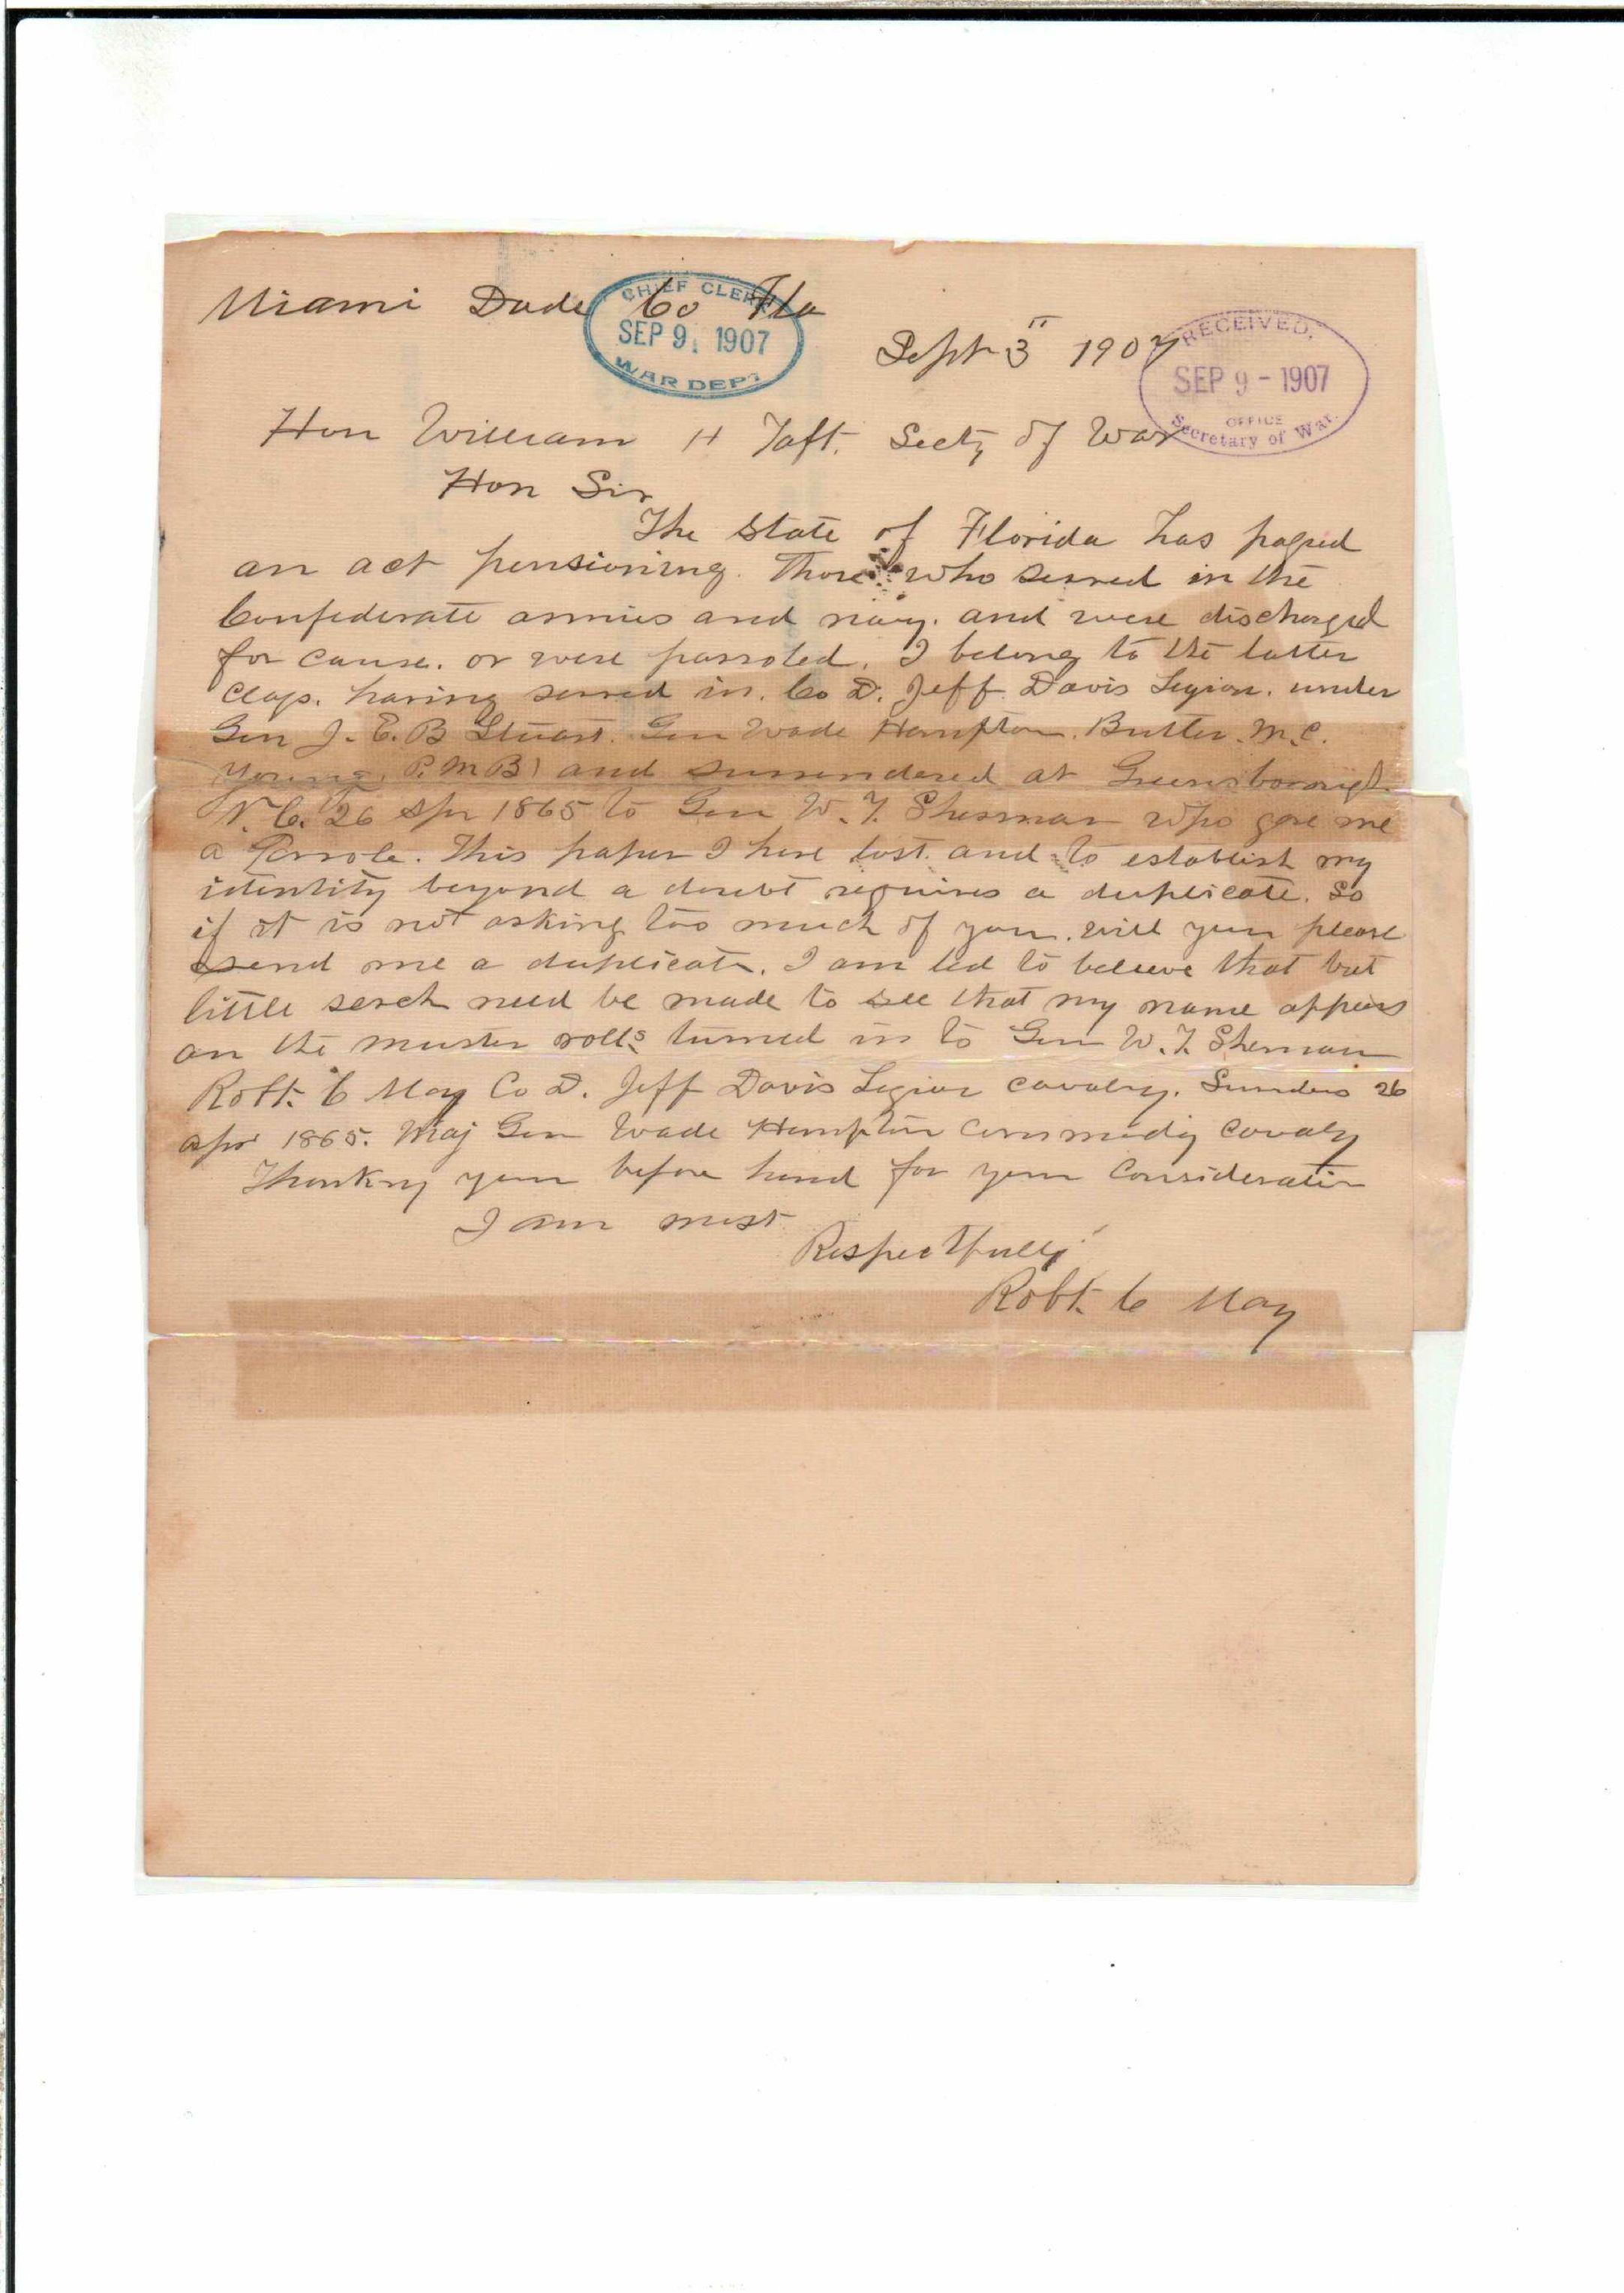 Miami Dade Co Fla
CHIEF CLERK
SEP 9. 1907
WAR DEPT
Sept 3" 1907
RECEIVED.
SEP 9 - 1907
OFFICE
Secretary of War.
Hon William H Taft. Secty of War
Hon Sir
The State of Florida has passed
an act pensioning. Those who served in the
Confederate armies and navy. and were discharged
for cause. or were parroled. I belong to the latter
class. having served in. Co D. Jeff Davis Legion. under
Gen J. E. B Stuart. Gen Wade Hampton. Butler. M. C.
Young, P. M B) and surrendered at Greensborough
N. C. 26 Apr 1865 to Gen W. T. Sherman who gave me
a Parrole. This paper I have lost. and to establish my
identity beyond a doubt requires a duplicate. So
if it is not asking too much of you. will you please
send me a duplicate. I am led to believe that but
little serch need be made to see that my name appears
on the muster rolls turned in to Gen W. T. Sherman
Robt. C May Co D. Jeff Davis Legion Cavalry. Surrders 26
Apr 1865. Maj Gen Wade Hampton Commandig Cavaly
Thanking you before hand for your Consideration
I am most
Respectfully
Robt. C May